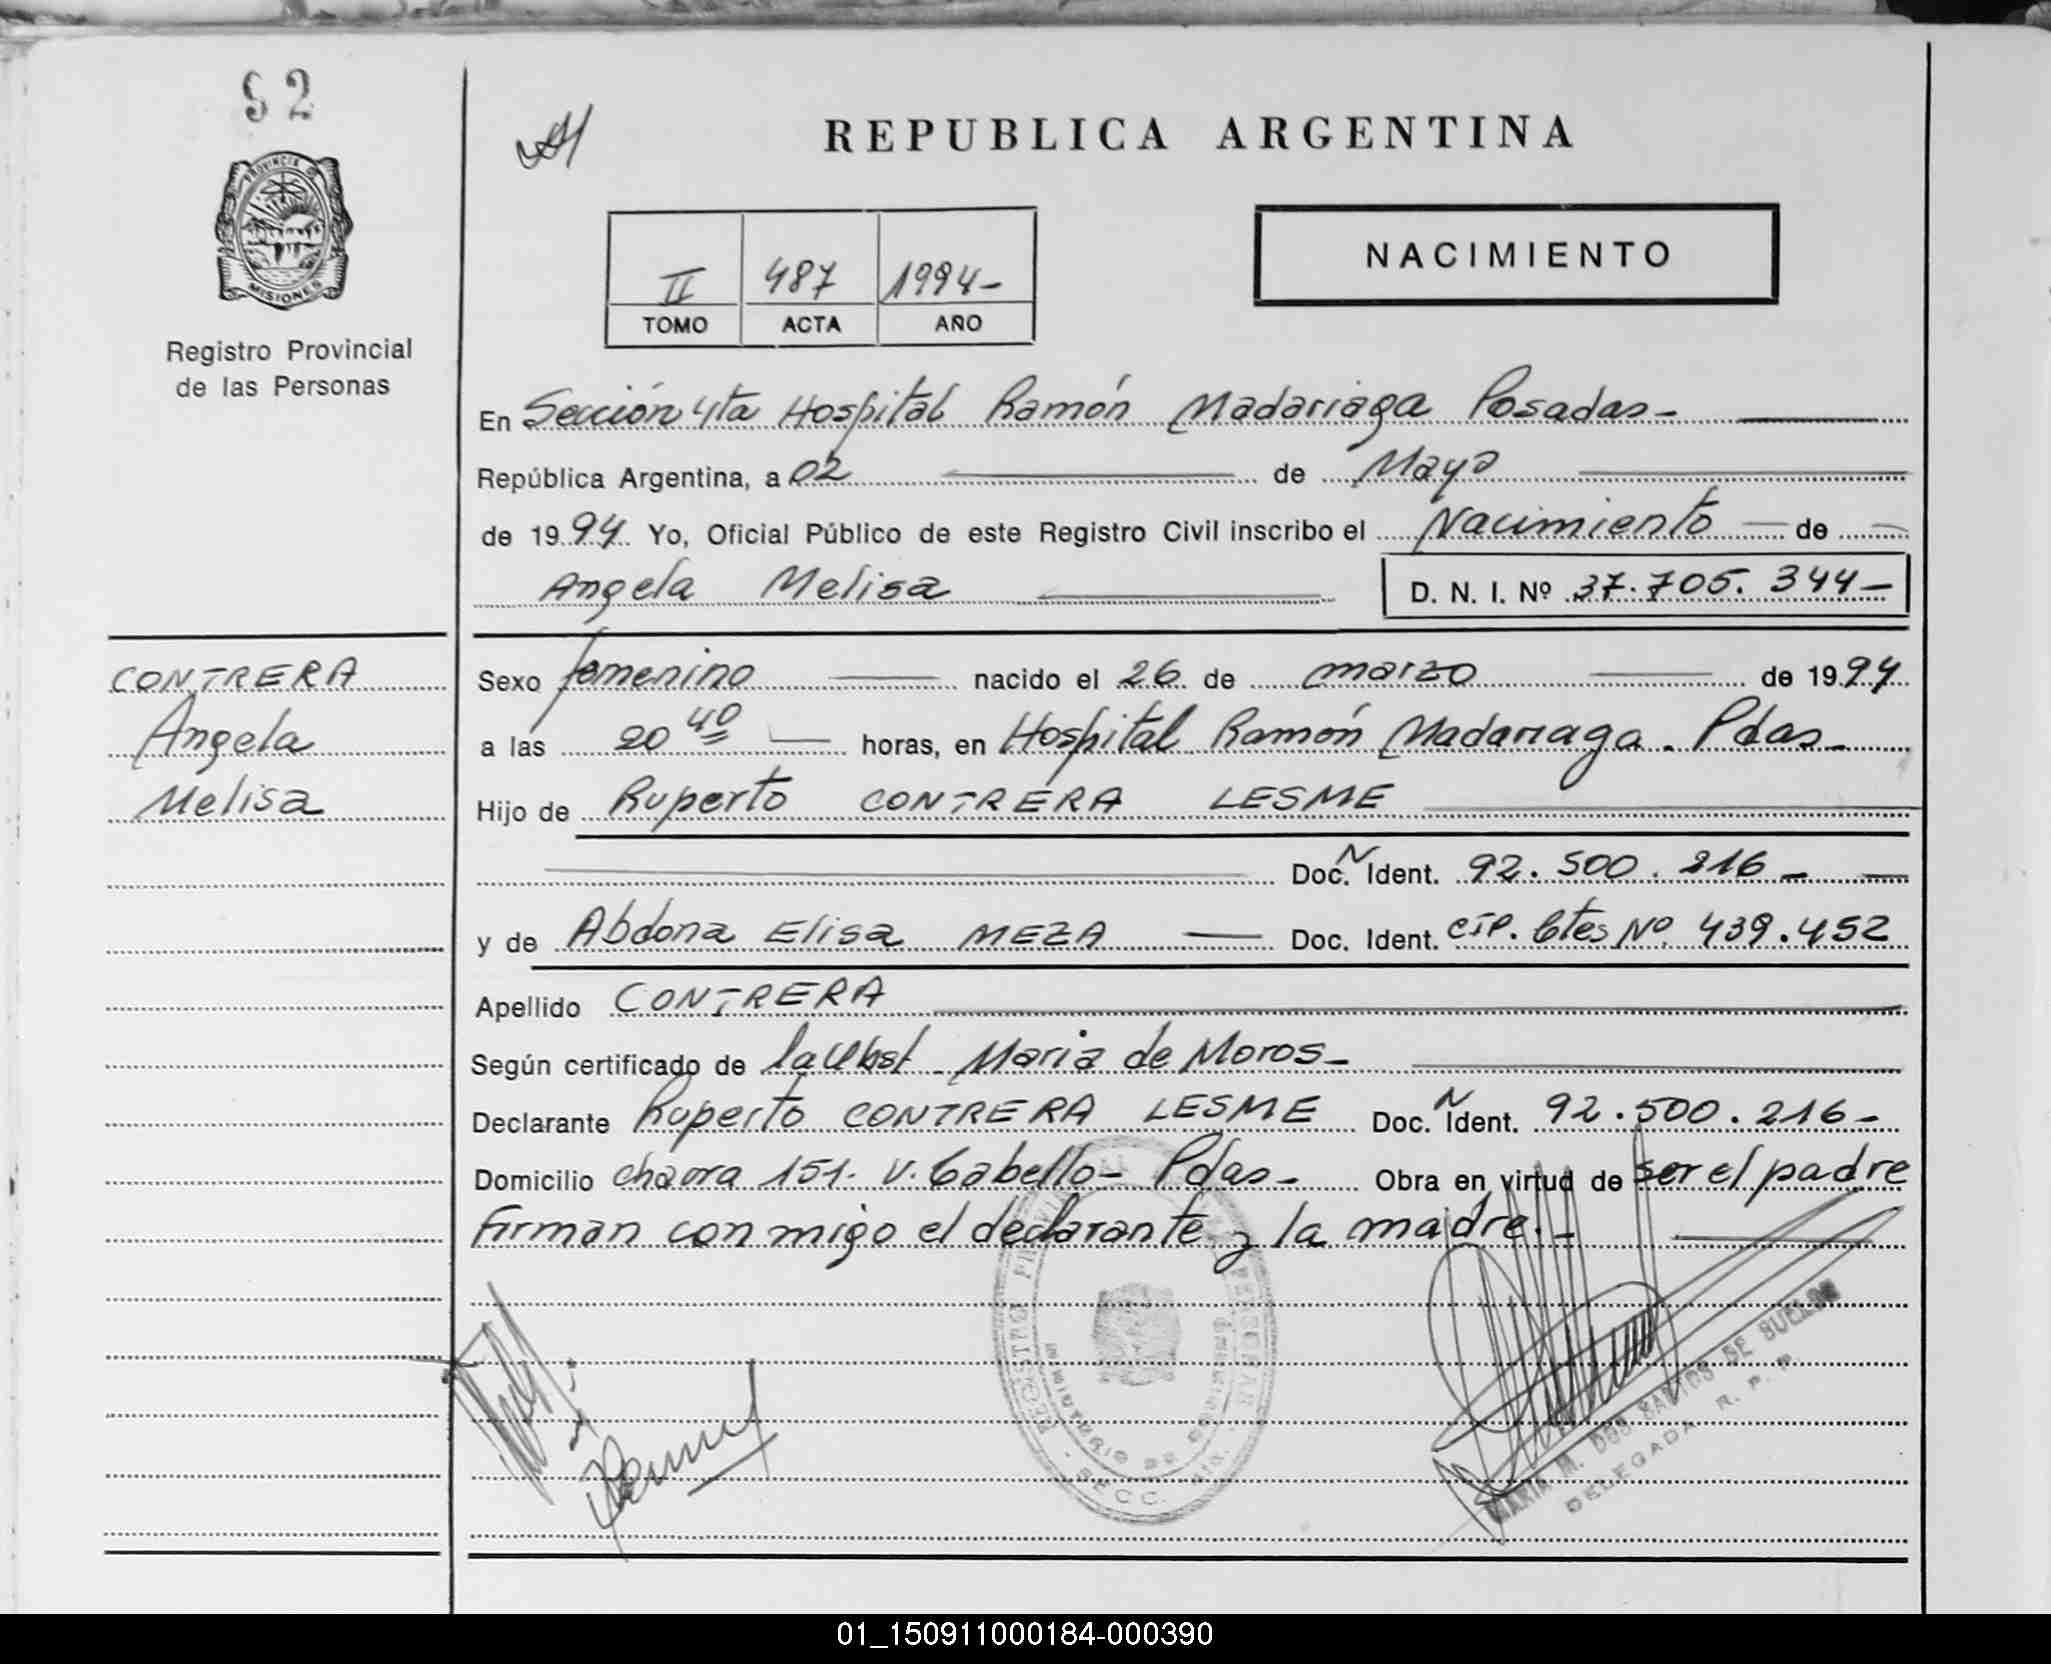 52
PROVINCIA DE
MISIONES
Registro Provincial
de las Personas
REPUBLICA ARGENTINA
NACIMIENTO
II 487 1994-
TOMO ACTA AÑO
En Sección 4ta Hospital Ramón Madariaga Posadas-
República Argentina, a 02 de Mayo
de 1994 Yo, Oficial Público de este Registro Civil inscribo el Nacimiento de
Angela Melisa D. N. I. Nº 37.705.344-
CONTRERA
Angela
Melisa
Sexo femenino nacido el 26 de marzo de 1994
a las 20 40 horas, en Hospital Ramón Madariaga. Pdas-
Hijo de Ruperto CONTRERA LESME
Doc. N Ident. 92.500.216-
y de Abdona Elisa MEZA Doc. Ident. CIP. Ctes Nº 439.452
Apellido CONTRERA
Según certificado de la Obst. Maria de Moros-
Declarante Ruperto CONTRERA LESME Doc. N Ident. 92.500.216-
Domicilio chacra 151. V. Cabello- Pdas- Obra en virtud de ser el padre
Firman conmigo el declarante y la madre.-
MARIA M. DOS SANTOS DE BUELOW
DELEGADA R. P. P.
01_150911000184-000390